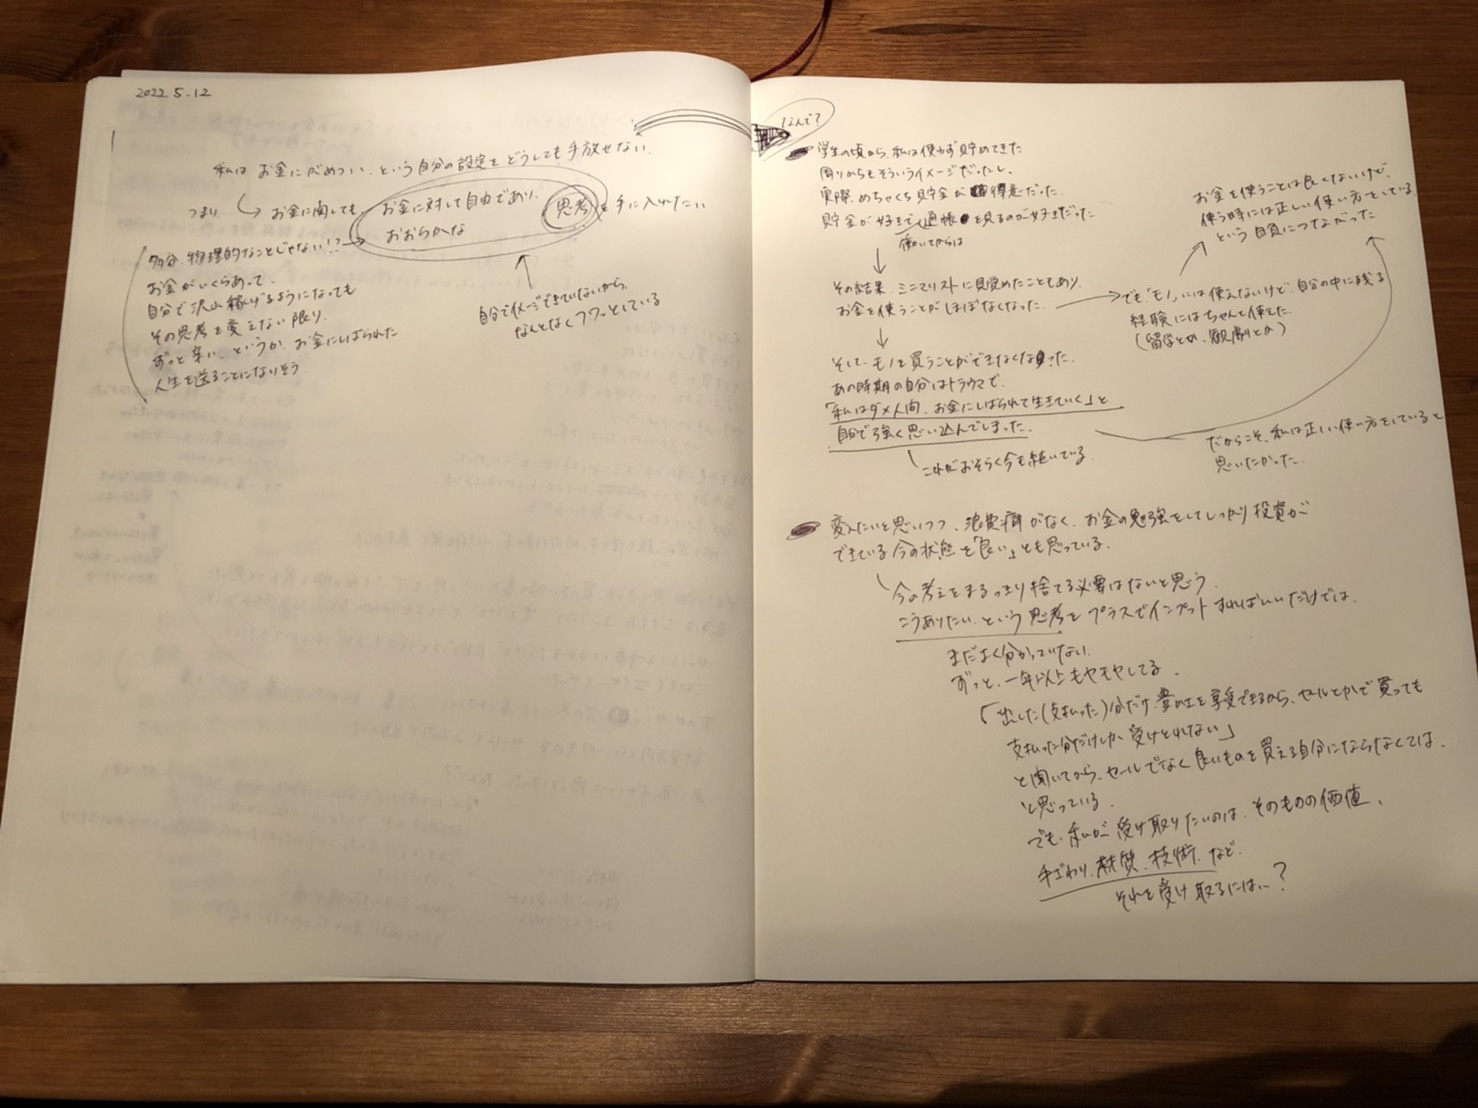 2022 5.12
私は お金にがめつい、という自分の設定をどうしても手放せない、
つまり、お金に関しても、お金に対して自由であり、
おおらかな
思考を手に入れたい
多分、物理的なことじゃない!?
お金がいくらあって、
自分で沢山稼げるようになっても
その思考を変えない限り、
ずっと辛い、というか、お金にしばられた
人生を送ることになりそう
自分でイメージできていないから、
なんとなくフワっとしている
なんで?
学生の頃から、私は使わず貯めてきた
周りからもそういうイメージだったし、
実際、めちゃくちゃ貯金が得意だった。
貯金が好きで、通帳を見るのが好きだった
働いてからは
その結果、ミニマリストに目覚めたこともあり、
お金を使うことがほぼなくなった。
でも「モノ」には使えないけど、自分の中に残る
経験にはちゃんと使てた
(留学とか、観劇とか)
お金を使うことは良くないけど、
使う時には正しい使い方をしている
という自負につながった
そして、モノを買うことができなくなった。
あの時期の自分はトラウマで、
「私はダメ人間、お金にしばられて生きていく」と
自分で強く思い込んでしまった。
これがおそらく今も続いている。
だからこそ、私は正しい使い方をしていると
思いたかった。
変えたいと思いつつ、浪費癖がなく、お金の勉強をしてしっかり投資が
できている今の状態を「良い」とも思っている。
今の考えをまるっきり捨てる必要はないと思う。
こうありたい、という思考をプラスでインプットすればいいだけでは、
まだよく分かっていない。
ずっと、一年以上モヤモヤしてる。
「出した(支払った)分だけ豊かさを享受できるから、セールとかで買っても
支払った分だけしか受けとれない」
と聞いてから、セールでなく良いものを買える自分にならなくては、
と思っている。
でも、私が受け取りたいのは、そのものの価値、
手ざわり、材質、技術、など、
それを受け取るには…?